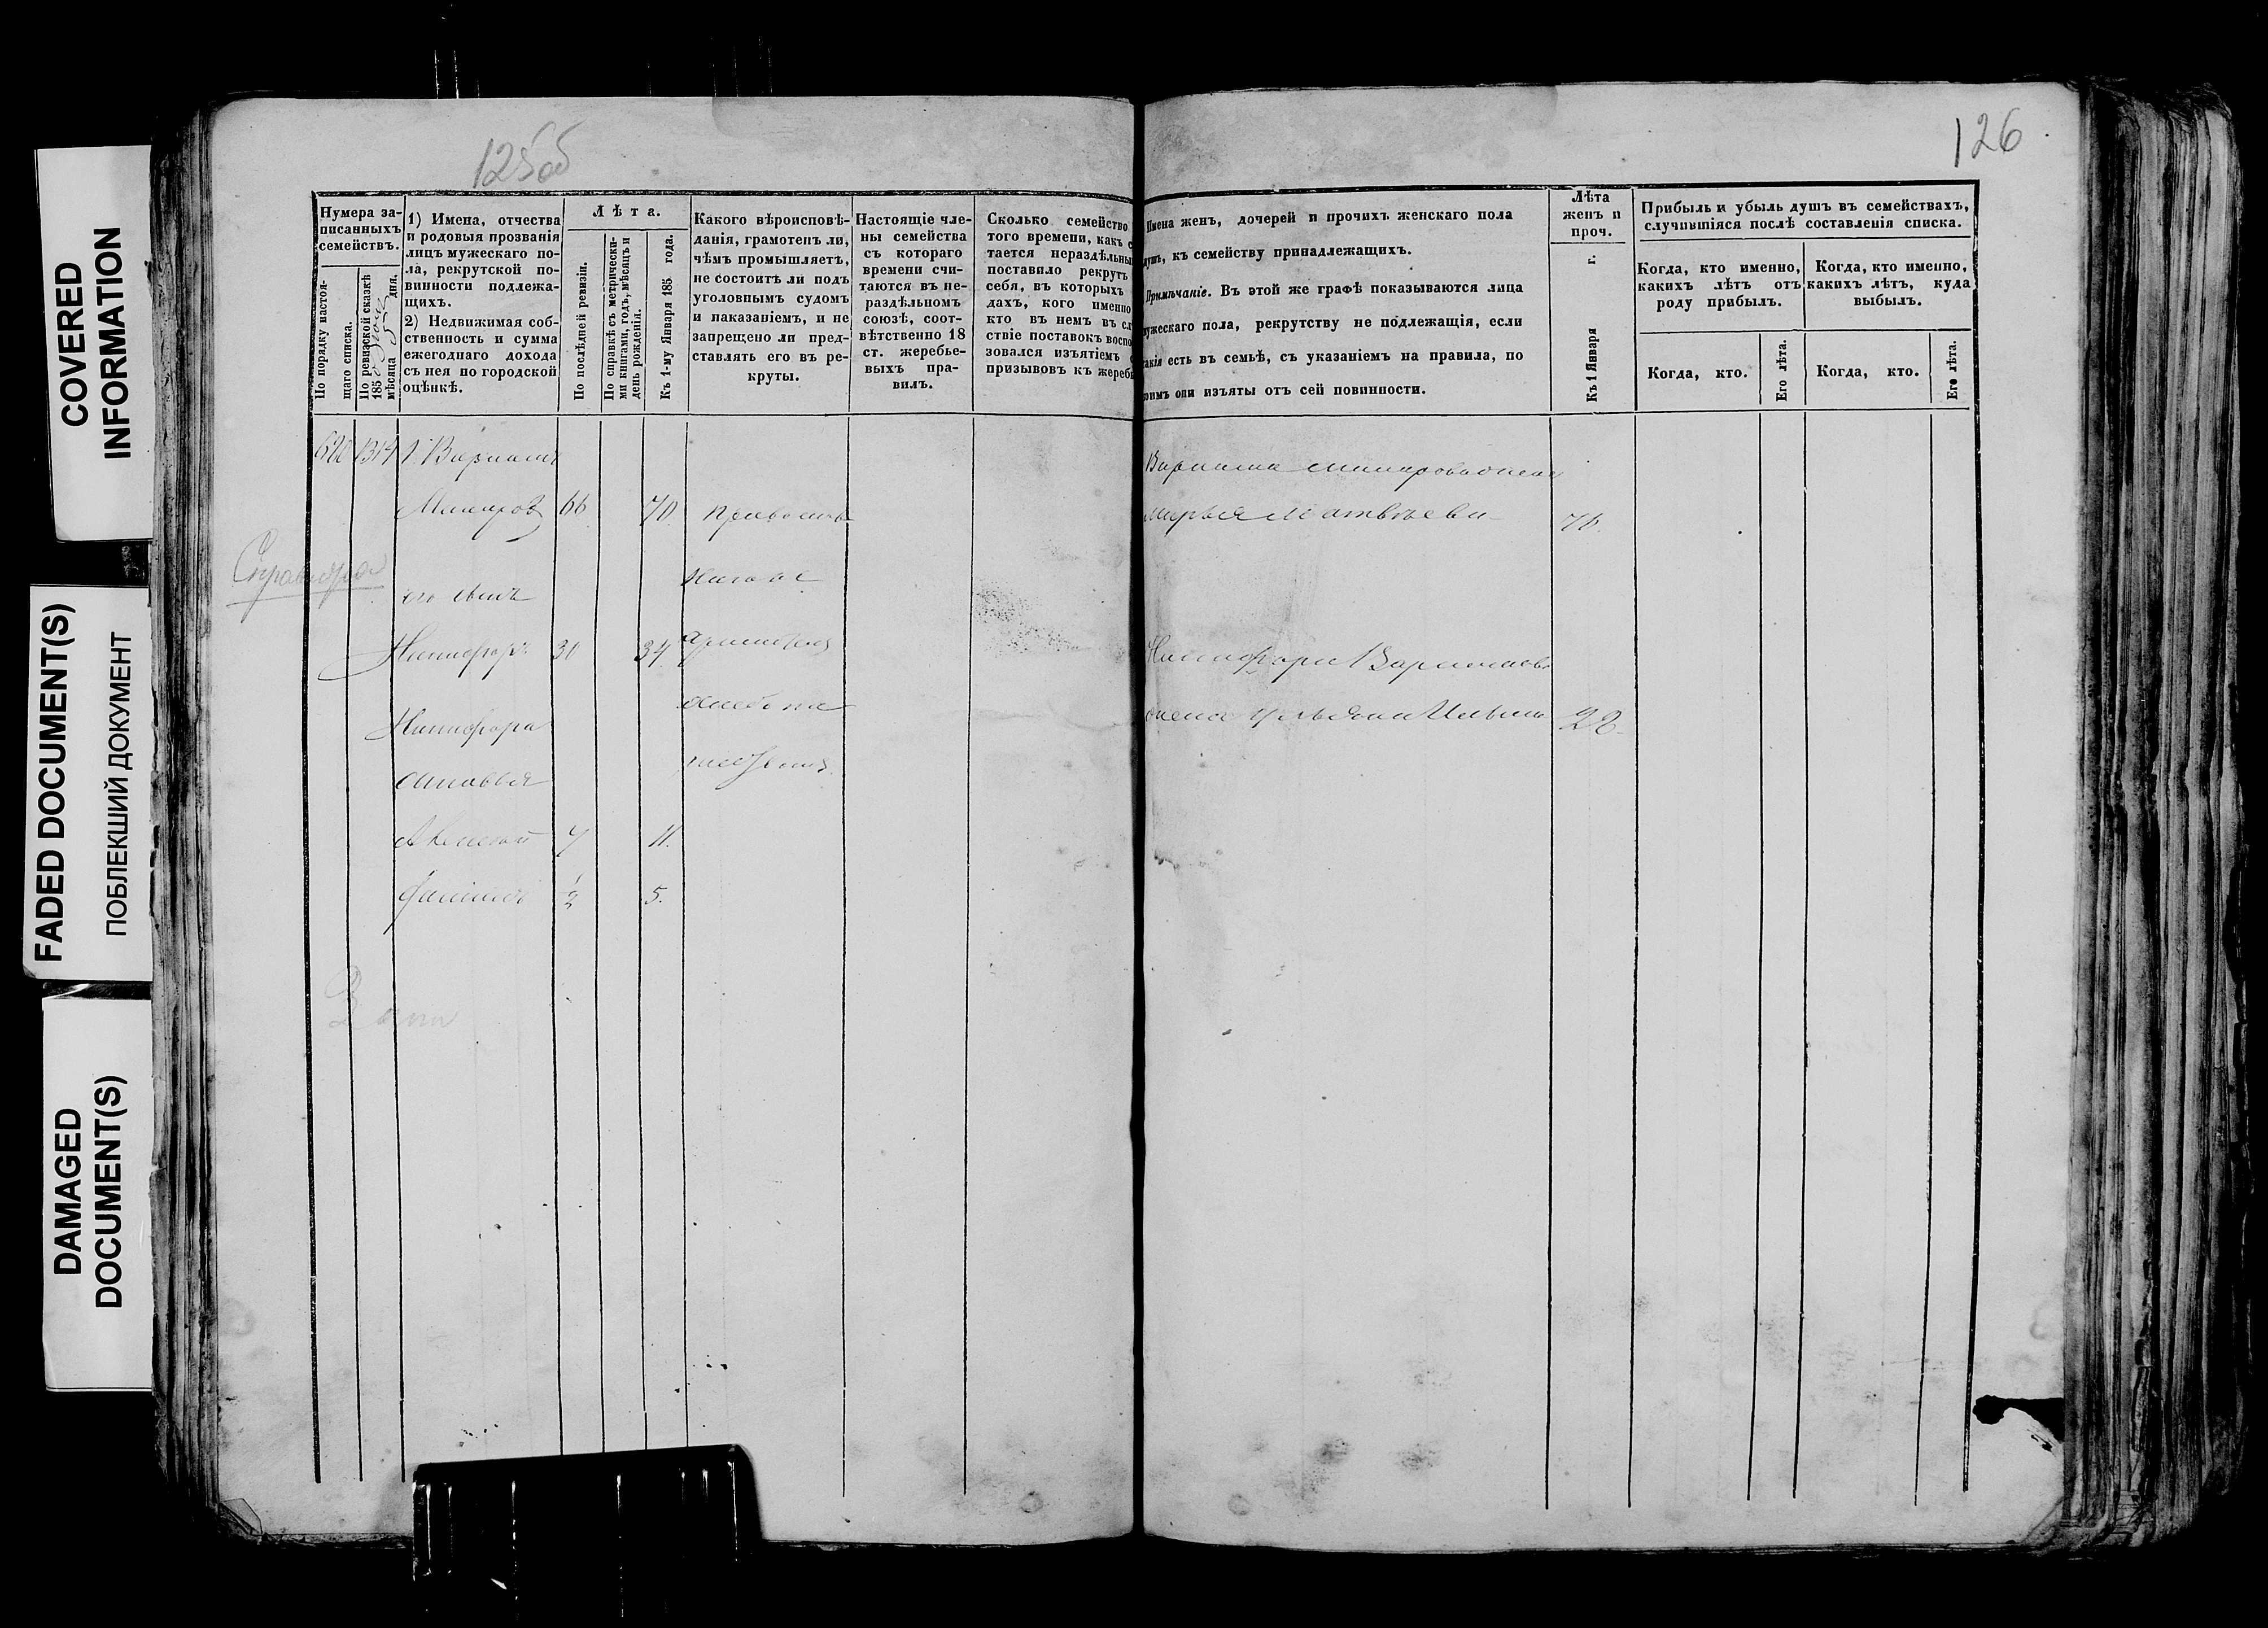 COVERED
INFORMATION
FADED DOCUMENT(S)
ПОБЛЕКШИЙ ДОКУМЕНТ
DAMAGED
DOCUMENT(S)
125об
Нумера за-
писанныхъ
семействъ.
По порядку настоя-
щаго списка.
По ревизской сказкѣ
185
мѣсяца дня.
1) Имена, отчества
и родовыя прозванія
лицъ мужескаго по-
ла, рекрутской по-
винности подлежа-
щихъ.
2) Недвижимая соб-
ственность и сумма
ежегоднаго дохода
съ нея по городской
оцѣнкѣ.
Лѣта.
По послѣдней ревизіи.
По справкѣ съ метрически-
ми книгами, годъ, мѣсяцъ и
день рожденія.
Къ 1-му Января 185 года.
Какого вѣроисповѣ-
данія, грамотенъ ли,
чѣмъ промышляетъ,
не состоитъ ли подъ
уголовнымъ судомъ
и наказаніемъ, и не
запрещено ли пред-
ставлять его въ ре-
круты.
Настоящіе чле-
ны семейства
съ котораго
времени счи-
таются въ не-
раздѣльномъ
союзѣ, соот-
вѣтственно 18
ст. жеребье-
выхъ пра-
вилъ.
Сколько семейство
того времени, какъ с
тается нераздѣльны
поставило рекрутъ
себя, въ которыхъ
дахъ, кого именно
кто въ немъ въ сл
ствіе поставокъ воспо
зовался изъятіемъ о
призывовъ къ жереб
620 1319 1. Варламъ
Макаровъ 66 70. Православ
Справиться
его сынъ
Никифоръ 30 34.
Никифора
сыновья
Алексѣй 7 11.
1/2 5.
126
Имена женъ, дочерей и прочихъ женскаго пола
душъ, къ семейству принадлежащихъ.
Примѣчаніе. Въ этой же графѣ показываются лица
мужескаго пола, рекрутству не подлежащія, если
такія есть въ семьѣ, съ указаніемъ на правила, по
коимъ они изъяты отъ сей повинности.
Лѣта
женъ и
проч.
Къ 1 Января г.
Прибыль и убыль душъ въ семействахъ,
случившіяся послѣ составленія списка.
Когда, кто именно,
какихъ лѣтъ отъ
роду прибылъ.
Когда, кто именно,
какихъ лѣтъ, куда
выбылъ.
Когда, кто.
Его лѣта.
Когда, кто.
Его лѣта.
Варлама Макарова жена
Марья Матвѣева
Никифора Варламова
жена Ульяна Ильина 28